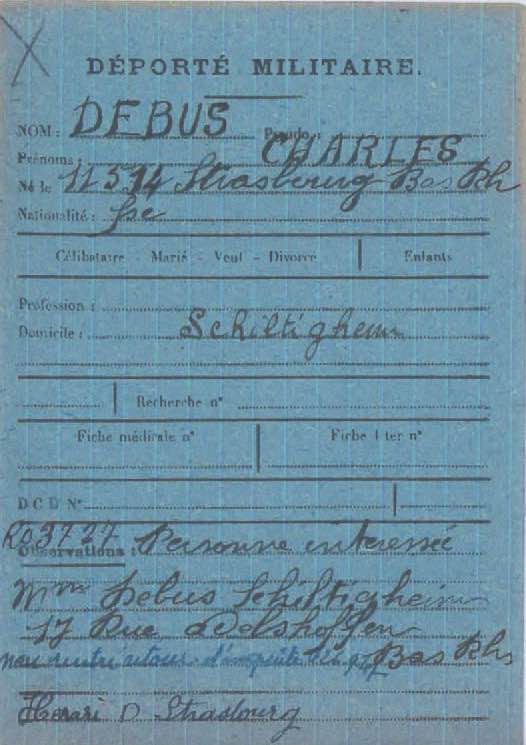 DÉPORTÉ MILITAIRE.
NOM : DEBUS Pseudo :
Prénoms : CHARLES
Né le 11 5 14 Strasbourg Bas Rh
Nationalité : fse
Célibataire - Marié - Veuf - Divorcé Enfants
Profession :
Domicile : Schiltigheim
Recherche n°
Fiche médicale n° Fiche 1 ter n°
D C D N°
R03727
Observations : Personne interessée
Mme Debus Schiltigheim
17 Rue
non rentré Bas Rhs
D Strasbourg